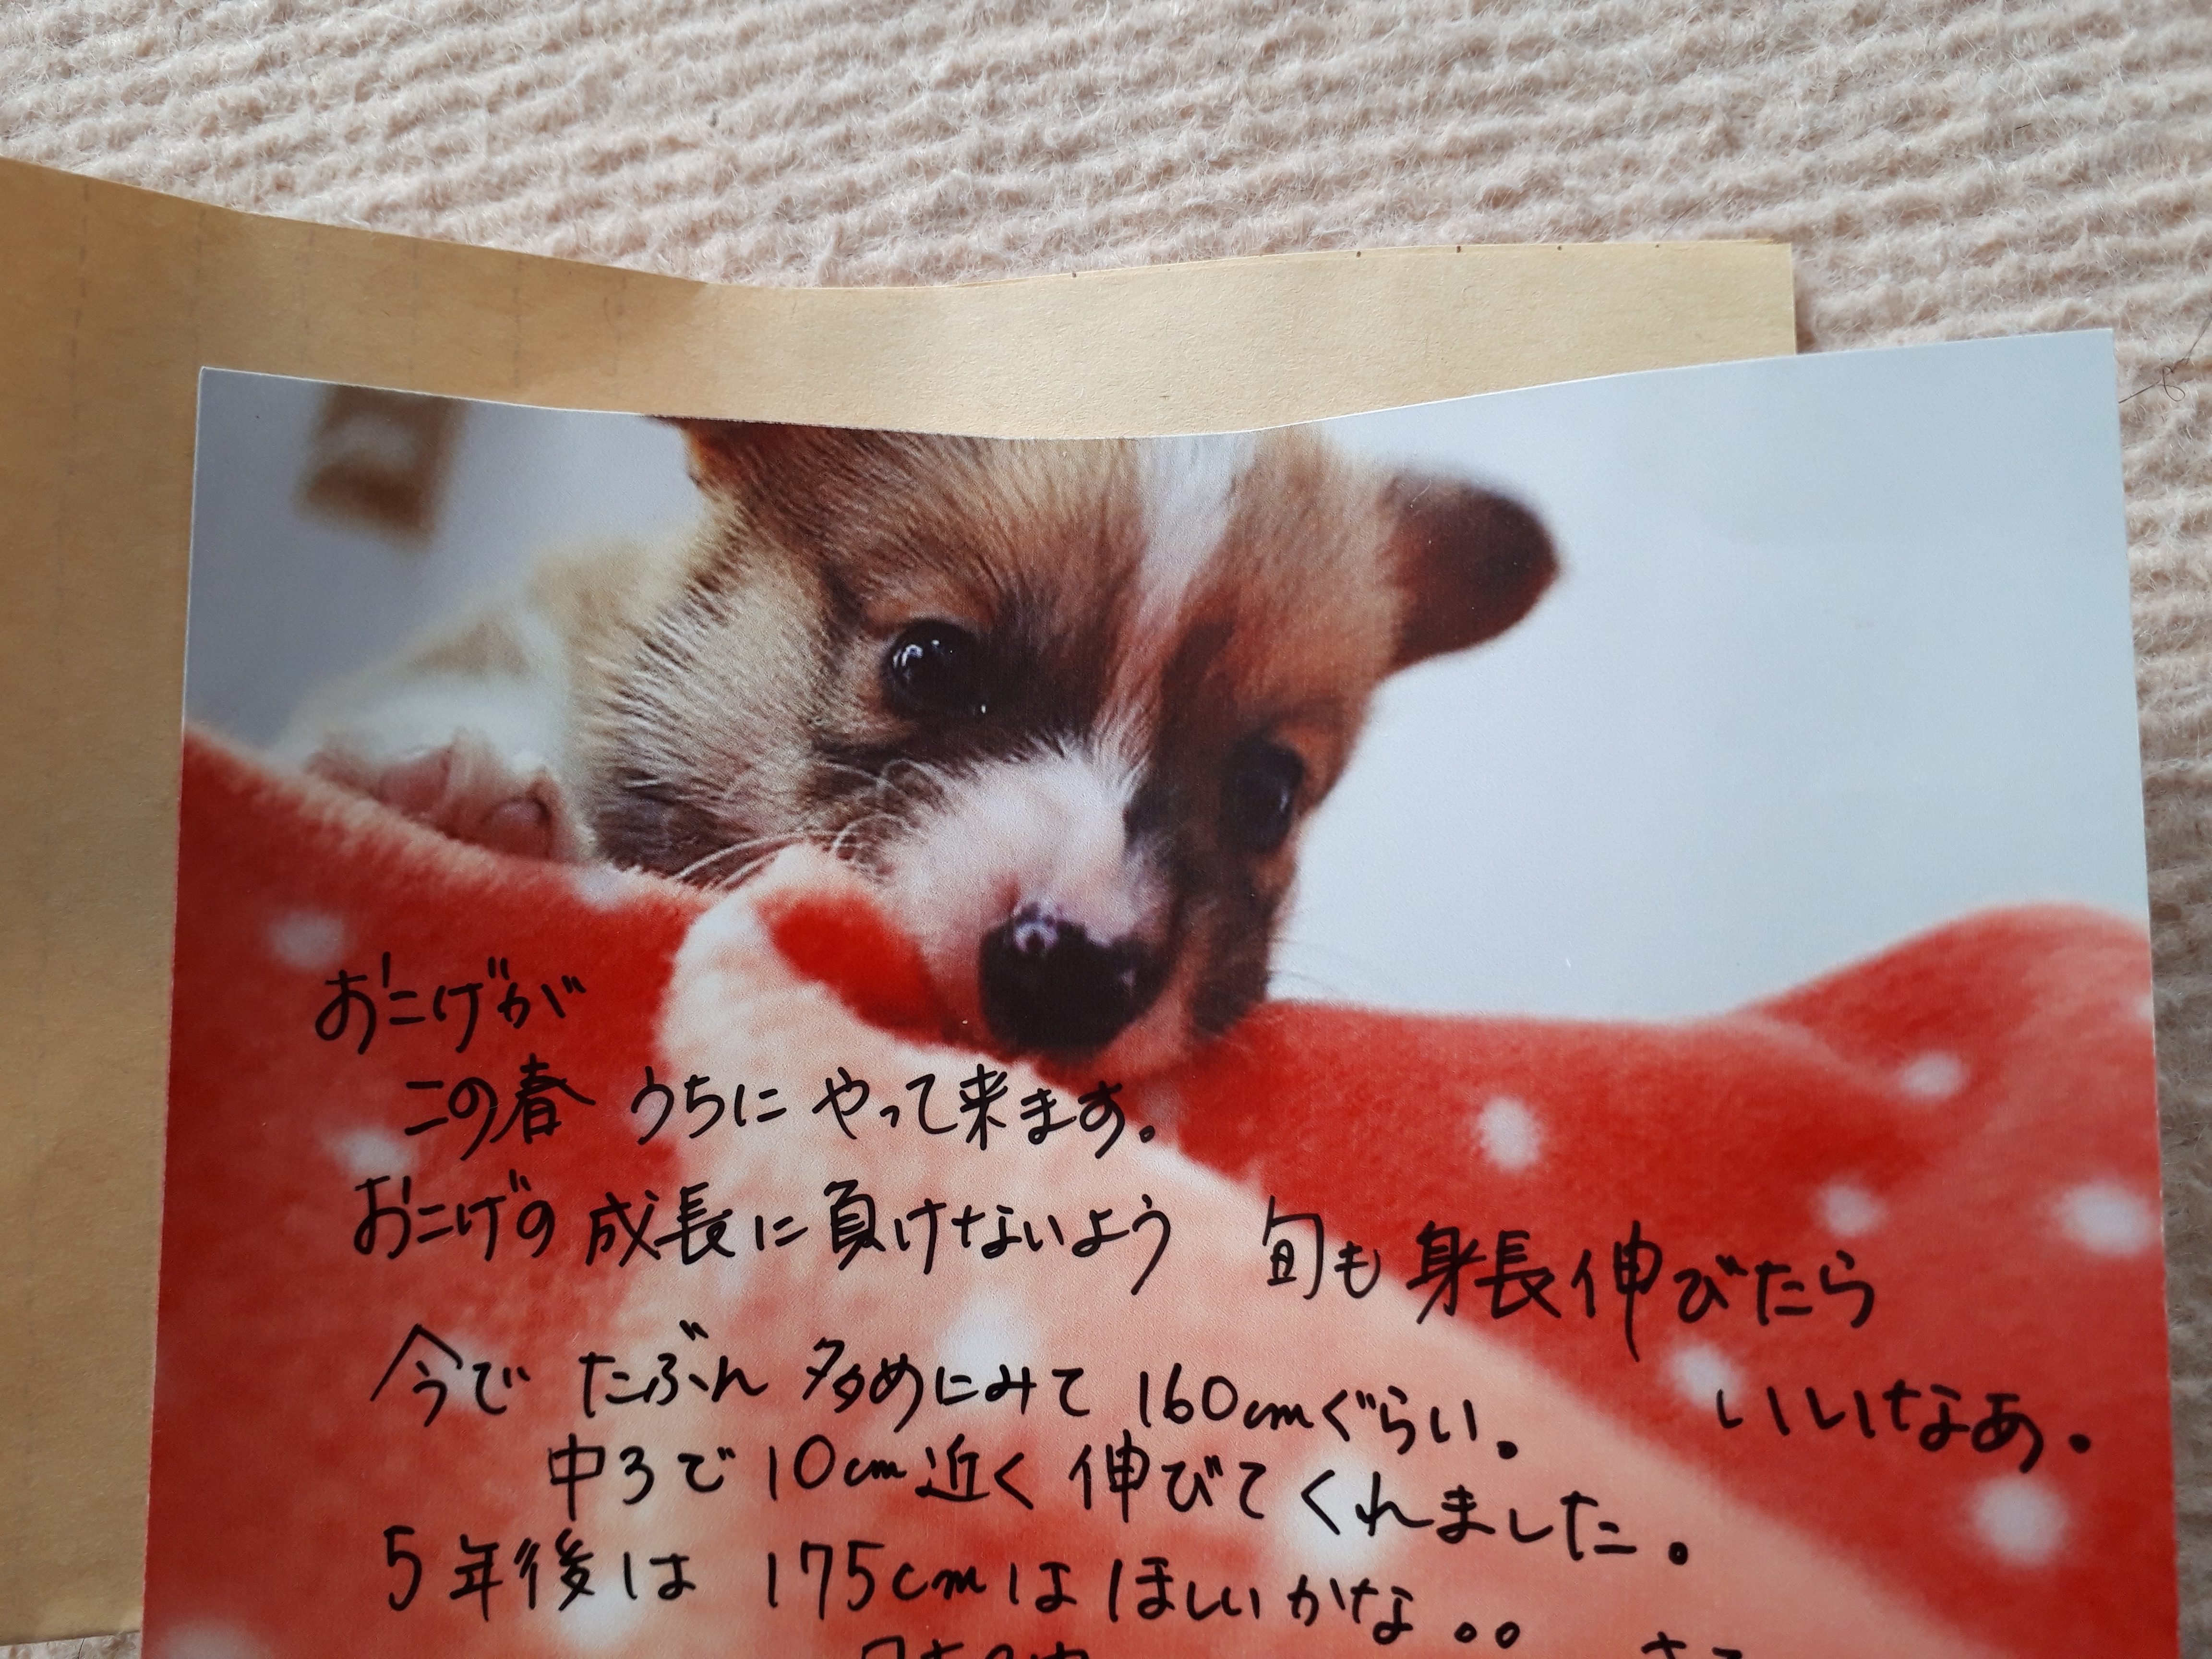 おこげが
この春 うちに やって来ます。
おこげの 成長に 負けないよう 旬も 身長伸びたら
いいなあ。
今で たぶん 多めにみて 160cmぐらい。
中3で 10cm近く 伸びて くれました。
5年後は 175cmは ほしいかな。。